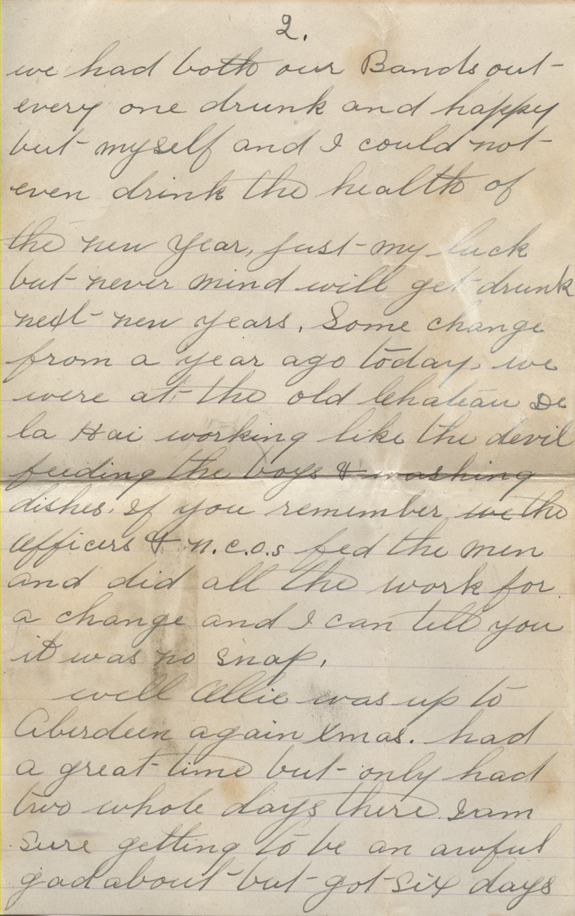 2.
we had both our Bands out
every one drunk and happy
but myself and I could not
even drink the health of
the new year, just my luck
but never mind will get drunk
next new years. Some change
from a year ago today. we
were at the old Chateau De
la Hai working like the devil
feeding the boys & washing
dishes. If you remember we the
officers & n.c.o.s fed the men
and did all the work for
a change and I can tell you
it was no snap.
well Allie was up to
Aberdeen again Xmas. had
a great time but only had
two whole days there I am
sure getting to be an awful
gad about but got six days